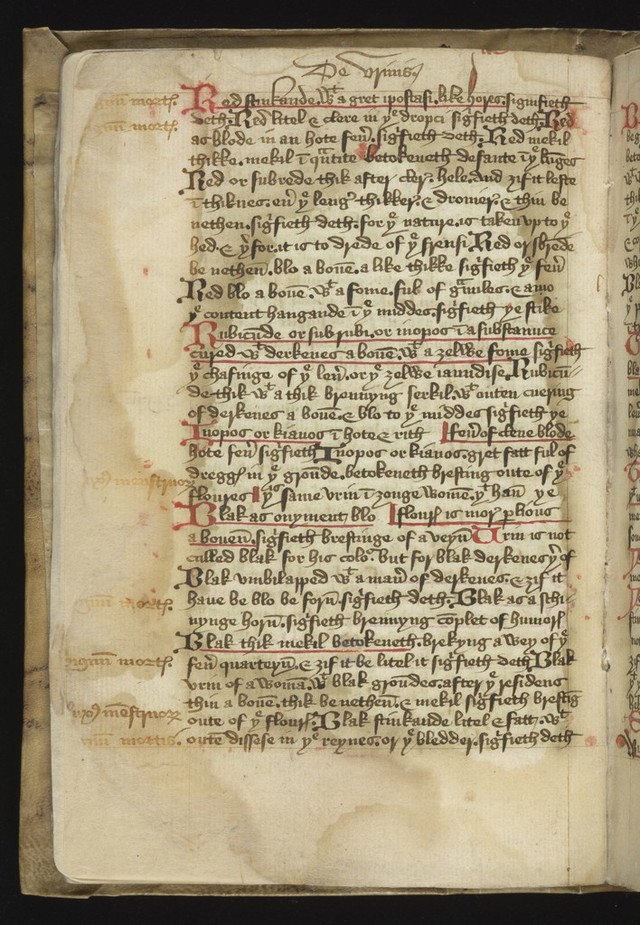 De Vrinis
Red stinkande. wt a gret ipostasi. like hores. signifieth
deth. Red litel & clere in ye dropci sigfieth deth. Red
as blode in an hote feur. sigfieth deth. Red mekil
thikke. mekil i qantite betokeneth defaute i ye lunges
Red or subrede thik after cler. hele. And zif it leste
i thiknes. eur ye lengr thikker. & dromier. & thin be
nethen. sigfieth deth. for ye nature. is taken up to ye
hed. & yrfor. it is to drede of ye frensi. Red or sbrede
be nethen. blo a boue. a like thikke sigfieth ye feur
Red blo a boue. wt a fome. ful of & amo
ye content hangande i ye middes. sigfieth ye
Rubicude or subrubi. or inopos i a substaunce
cured wt derkenes a boue. wt a zelwe fome sigfieth
ye chafinge of ye leur. or ye zelwe iaundise. Rubicu
de thik wt a thik brennyng serkil. wt outen cuering
of derkenes a boue. & blo to ye middes sigfieth ye
Inopos or kianos i hote & rith feur of clene blode
hote feur sigfieth Inopos or kianos. gret fatt ful of
dregges in ye grounde. betokeneth bresting oute of ye
floures I ys same vrin i zonge wome. yt han ye
Blak as onyment, blo flours is mor pilous
a bouen. sigfieth brestinge of a veyn Urin is not
culled blak for his color. but for blak derkenes yr of
Blak umbilapped wt a maner of derkenes. & zif it
haue be blo be forn. sigfieth deth. Blak as a schi
nynge horn. sigfieth brennyng coplet of humors
Blak thik mekil betokeneth. brekyng a wey of ye
feur quarteyn. & zif it be litel it sigfieth deth Blak
vrin of a woman. wt blak groundes. after ye residens
thin a boue. thik be nethen. & mekil sigfieth bresting
oute of ye flours. Blak stinkande litel & fatt. wt
oute dissese in ye reynes. or ye bledder. sigfieth deth